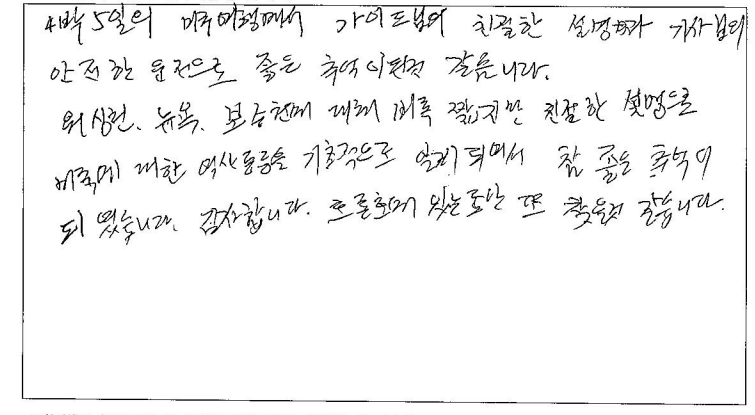 4박 5일의 미주여행에서 가이드님의 친절한 설명과 기사님의
안전한 운전으로 좋은 추억이 된것 같습니다.
워싱턴, 뉴욕, 보스턴에 대해 비록 짧지만 친절한 설명으로
미국에 대한 역사 등을 기초적으로 알게 되어서 참 좋은 추억이
되었습니다. 감사합니다. 토론토에 있는동안 또 찾을것 같습니다.